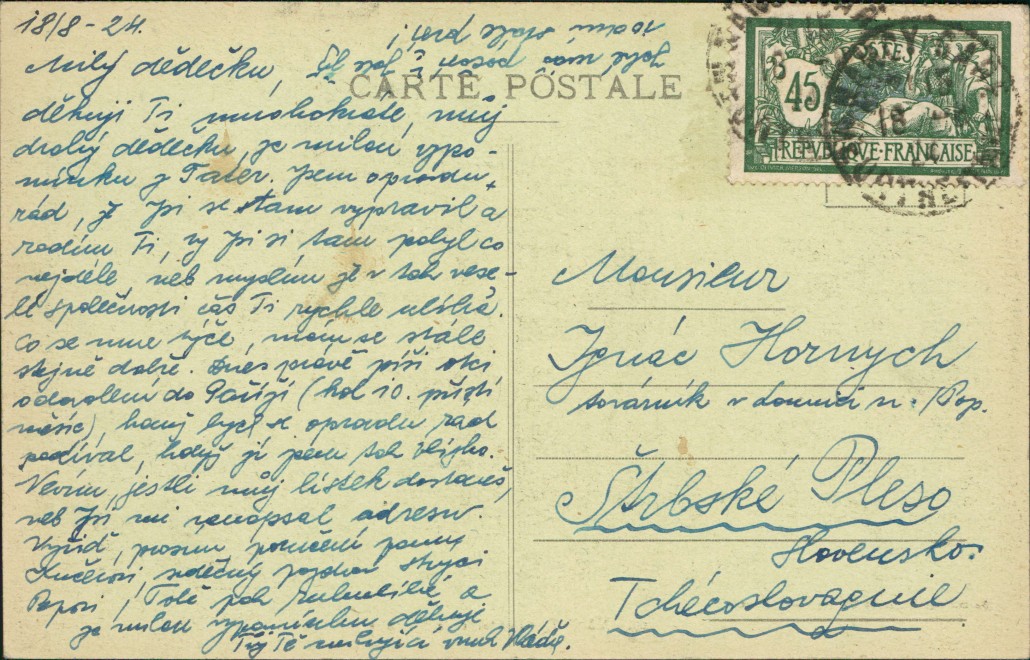 18/8 - 24.
Milý dědečku,
děkuji Ti mnohokráte, můj
drahý dědečku, za milou vzpo-
mínku z Tater. Jsem opravdu
rád, že Jsi se tam vypravil a
radím Ti, by Jsi si tam pobyl co
nejdéle, neb myslím že v tak vese-
lé společnosti čas Ti rychle ubíhá.
Co se mne týče, mám se stále
stejně dobře. Dnes právě píši otci
o dovolení do Paříže (kol 10. příští
měsíc), kam bych se opravdu rád
podíval, když já jsem tak blízko.
Nevím, jestli můj lístek dostaneš,
neb Jsi mi nenapsal adresu.
Vyřiď, prosím, poručení
srdečný pozdrav strýci
Pepovi, Tobě pak a
za milou vzpomínku děkuje
Tvůj Tě milující vnuk Vláďa.
CARTE POSTALE
POSTES
45
REPUBLIQUE FRANÇAISE
18
Monsieur
Ignác Hornych
továrník v Lomnici n./Pop.
Štrbské Pleso
Slovensko.
Tchécoslovaquie